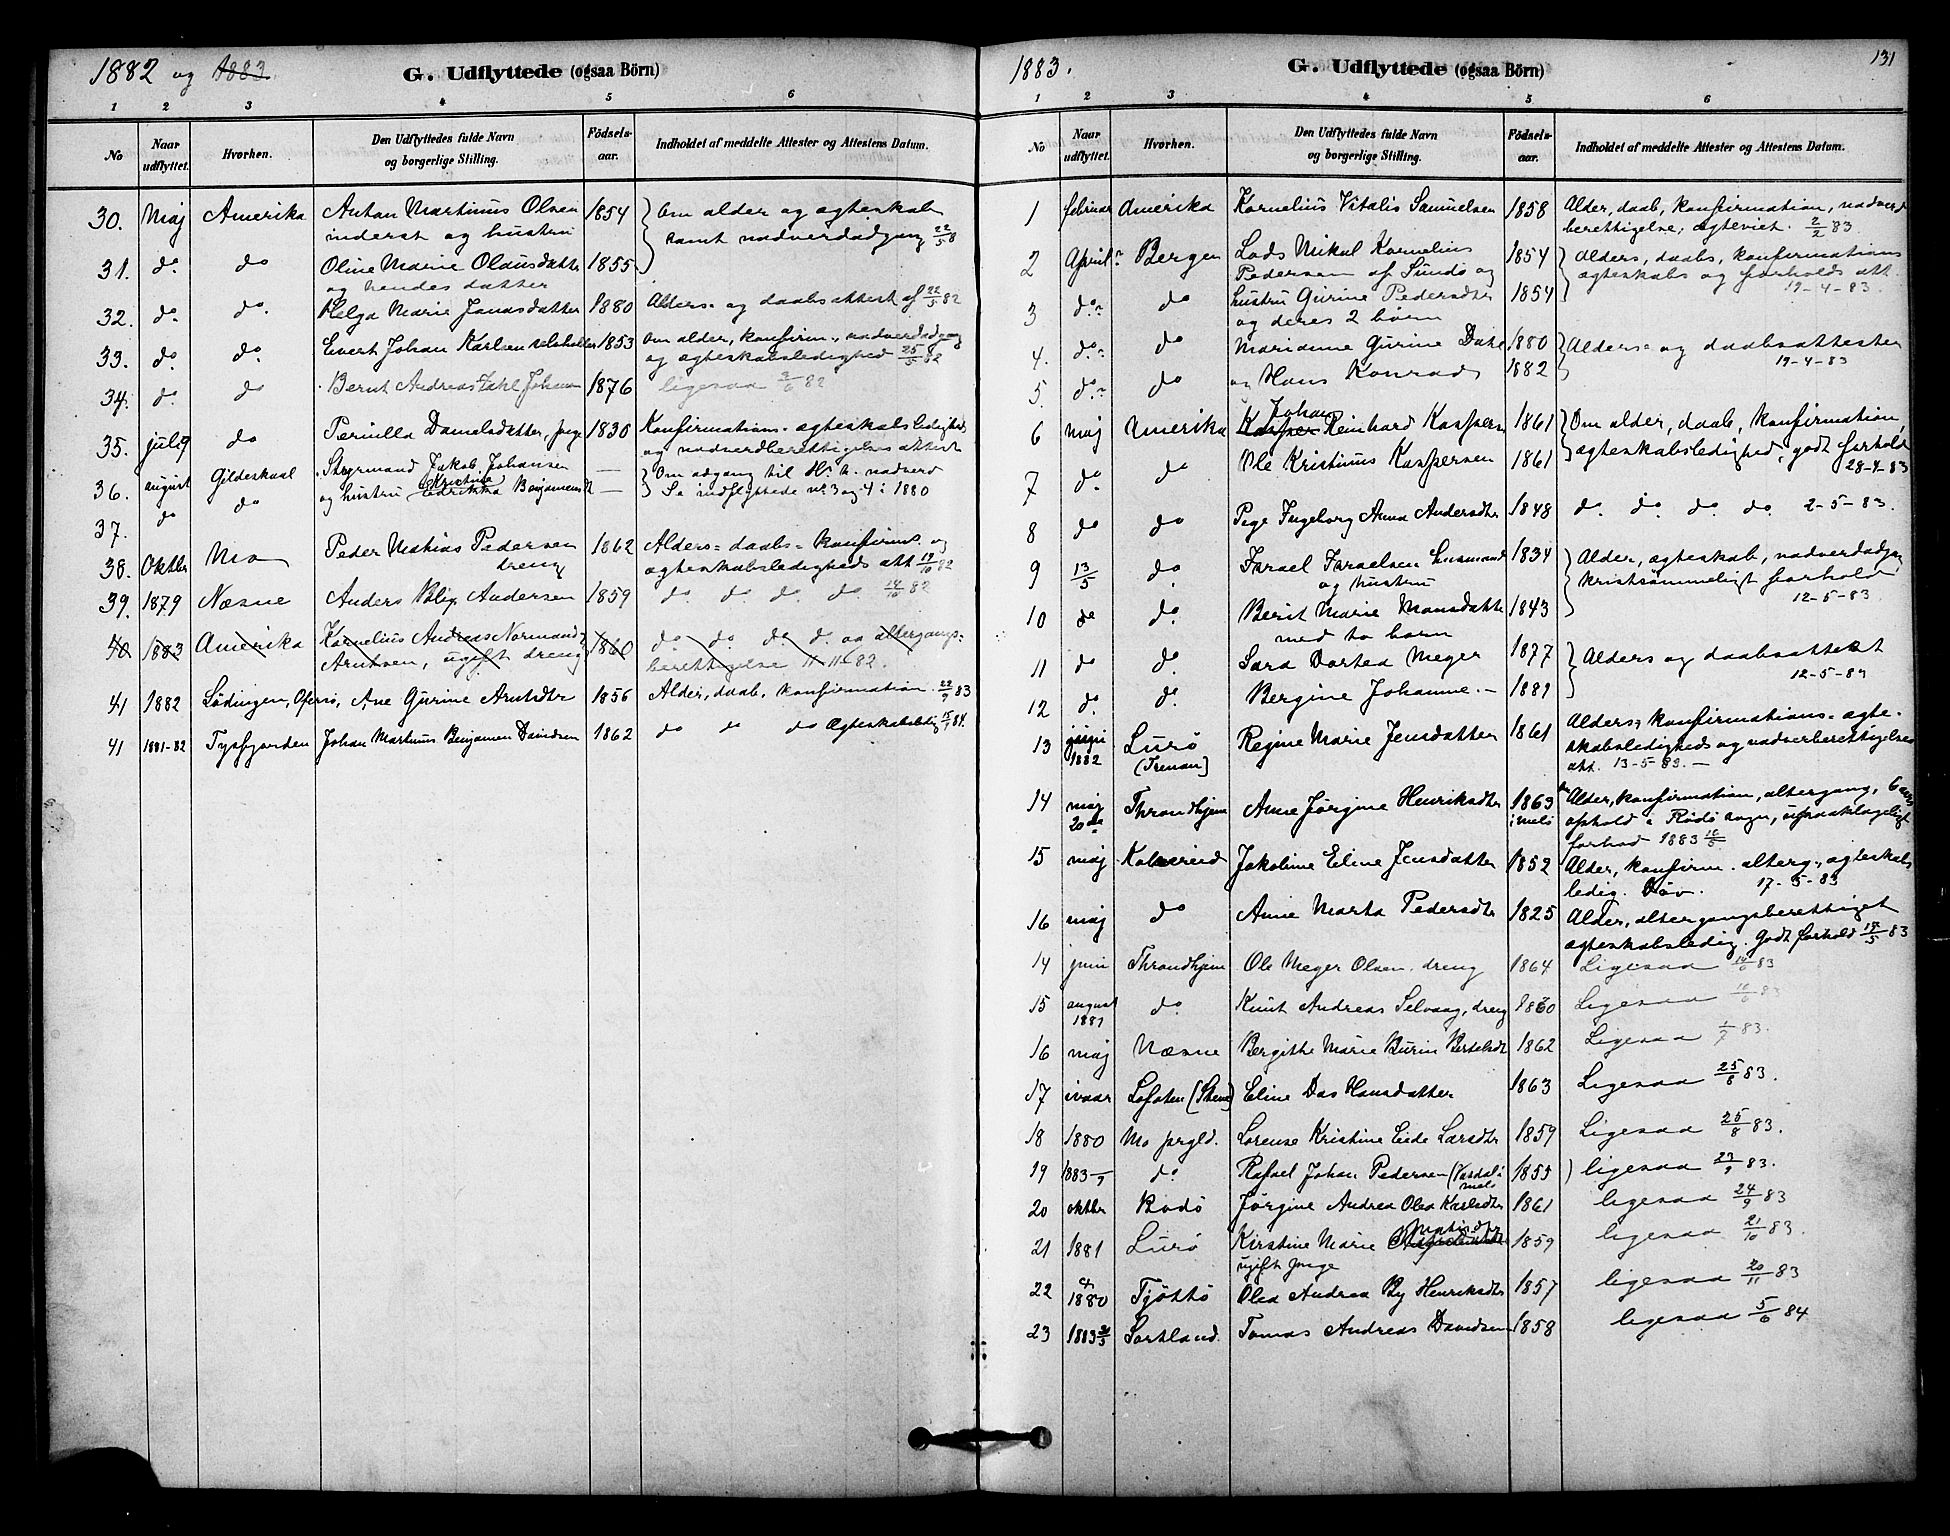 1882 og 1883.
G. Udflyttede (ogsaa Börn)
1 2 3 4 5 6
No
Naar udflyttet.
Hvorhen.
Den Udflyttedes fulde Navn
og borgerlige Stilling.
Födsels-
aar.
Indholdet af meddelte Attester og Attestens Datum.
30. Maj Amerika Anton Martinus Olsen 1854 Om alder og ægteskab
inderst og hustru samt nadverdadgang 22/5
31. do. do Oline Marie Olausdatter 1855
og hendes datter
32. do. do. Helga Marie Jonasdatter 1880 Alders- og daabsattest af 22/5 82
33. do. do. Evert Johan Karlsen 1853 om alder, konfirm., nadverdadgang
og ægteskabsledighed 25/5 82
34. do. do Bernt Andreas Johan 1876 ligesaa 2/6 82
35. july do Pernilla Danielsdatter, pige 1830 Konfirmations- ægteskabsledigheds
og nadverdberettigelses attest
36. august Gildeskaal Styrmand Jakob Johansen — Om adgang til H. h. nadverd
37. do do og hustru Kristine Benjamins — Se indflyttede nr. 3 og 4 i 1880
38. Oktbr Mo Peder Mathias Pedersen 1862 Alders- daabs- konfirms. og
dreng ægteskabsledigheds att 19/10 82
39. 1879 Næsne Anders Andersen 1859 do. do. do. do. 14/10 82
40 1883 Amerika Kornelius Andreas Normand 1860 do do do d. og altergangs-
Arntsen, ugift dreng berettigelse 11-11-82.
41 1882 Lødingen, Ofersø, Ane Gurine Arntsdtr 1856 Alder, daab, konfirmation. 22/9 83
41 1881-82 Tysfjorden Johan Martinus Benjamin Davidsen 1862 do do do Ægteskabsledig 84.
1883.
G. Udflyttede (ogsaa Börn)
131
1 2 3 4 5 6
No
Naar udflyttet.
Hvorhen.
Den Udflyttedes fulde Navn
og borgerlige Stilling.
Födsels-
aar.
Indholdet af meddelte Attester og Attestens Datum.
1 februar Amerika Kornelius Vitalis Samuelsen 1858 Alder, daab, konfirmation, nadverd
berettigelse, ægteviet. 2/2 83.
2 April Bergen Lods Mikal Kornelius 1854 Alders, daabs, konfirmations
Pedersen af Sundø og ægteskabs og forholds att.
3 do. do hustru Gurine Pedersdtr 1854 19-4-83.
og deres 2 børn
4. do. do Marianne Gurine 1880 Alders- og daabsattester
5. do. do og Hans Konrad 1882 19-4-83
6 maj Amerika Kasper Johan Reinhard Kaspersen 1861 Om alder, daab, konfirmation,
7 do. do Ole Kristinus Kaspersen 1861 ægteskabsledighed, godt forhold
28-4-83
8 do do Pige Ingeborg Anna Andersdtr 1848 do. do. do. do. 2-5-83.
9 13/5 do. Israel Israelsen husmand 1834 Alder, ægteskab, nadverdadgang
og hustru kristsømmeligt forhold
10 do do. Berit Marie Monsdatter 1843 12-5-83.
med to barn
11 do do. Sara Dortea Meyer 1877 Alders og daabsattest
12 do. do. Bergine Johanne. — 1881 12-5-83
13 1882 Lurø Regine Marie Jensdatter 1861 Alders- konfirmations- ægte-
(Trænen) skabsledigheds og nadverberettigelses
att. 13-5-83.—
14 maj Throndhjem Anne Jørgine Henriksdtr 1863 Alder, konfirmation, altergang, 6 aars
20de i Melø ophold i Rødø sogn, upaaklageligt
forhold 1883 16/5
15 maj Kolvereid Jakobine Eline Jensdatter 1852 Alder, konfirm. alterg., ægteskabs
ledig. Døv. 17-5-83
16 maj do Anne Marta Pedersdtr 1825 Alder, altergangsberettiget
ægteskabsledig. Godt forhold 19/5 83
14 juni Throndhjem Ole Meyer Olsen. dreng 1864 Ligesaa 83
15 august 1881 do. Knut Andreas Selvaag, dreng 1860 Ligesaa 83
16 maj Næsne Bergithe Marie Burin Bertelsdt 1862 Ligesaa 1/7 83.
17 ivaar Lofoten Eline Das Hansdatter 1863 Ligesaa 25/8 83.
18 1880 Mo prgld. Lorense Kristine Eide Larsdtr 1859 Ligesaa 25/8 83.
19 1883 do Rafael Johan Pedersen 1855 ligesaa 23/9 83.
20 oktbr Bodø Jørgine Andrea Olea Karlsdtr 1861 ligesaa 24/9 83
21 1881 Lurø Kirstine Marie Matisdtr 1859 ligesaa 21/10 83.
ugift pige
22 1880 Tjøttø Olea Andrea By Henriksdtr 1857 ligesaa 20/11 83
23 1883 Sortland. Tomas Andreas Davidsen 1858 ligesaa 5/6 84